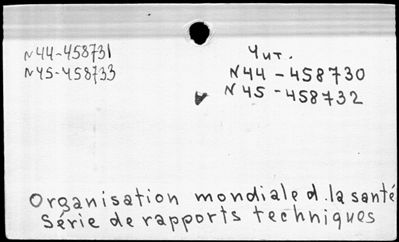 N44-458731
N45-458733
Чит.
N44-458730
N45-458732
Organisation mondiale d. la santé
Série de rapports techniques